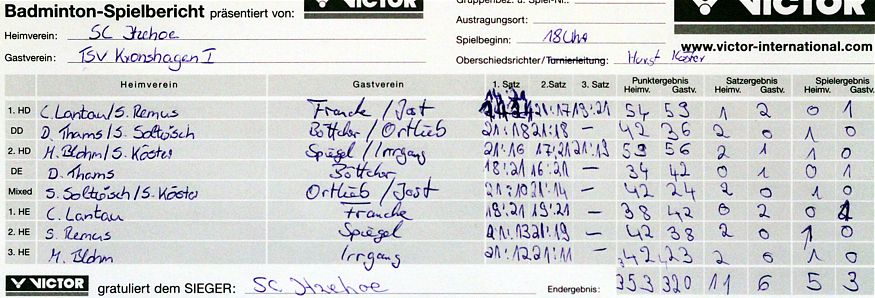 Badminton-Spielbericht präsentiert von: VICTOR Gruppenbez. o. Spiel-Nr.: VICTOR
Austragungsort:
Heimverein: SC Itzehoe Spielbeginn: 18 Uhr www.victor-international.com
Gastverein: TSV Kronshagen I Oberschiedsrichter/Turnierleitung: Horst Köster
Heimverein Gastverein 1. Satz 2.Satz 3. Satz Punktergebnis Satzergebnis Spielergebnis
Heimv. Gastv. Heimv. Gastv. Heimv. Gastv.
1. HD C. Lantau/S. Remus Francke/Jost 21:17 19:21 54 59 1 2 0 1
DD D. Thams/S. Soltwisch Böttcher/Ortlieb 21:18 21:18 – 42 36 2 0 1 0
2. HD M. Blohm/S. Köster Spiegel/Irrgang 21:16 17:21 21:19 59 56 2 1 1 0
DE D. Thams Böttcher 18:21 16:21 – 34 42 0 1 0 1
Mixed S. Soltwisch/S. Köster Ortlieb/Jost 21:10 21:14 – 42 24 2 0 1 0
1. HE C. Lantau Francke 19:21 19:21 – 38 42 0 2 0 1
2. HE S. Remus Spiegel 21:19 – 42 38 2 0 1 0
3. HE M. Blohm Irrgang 21:12 21:11 – 42 23 2 0 1 0
VICTOR gratuliert dem SIEGER: SC Itzehoe Endergebnis: 353 320 11 6 5 3